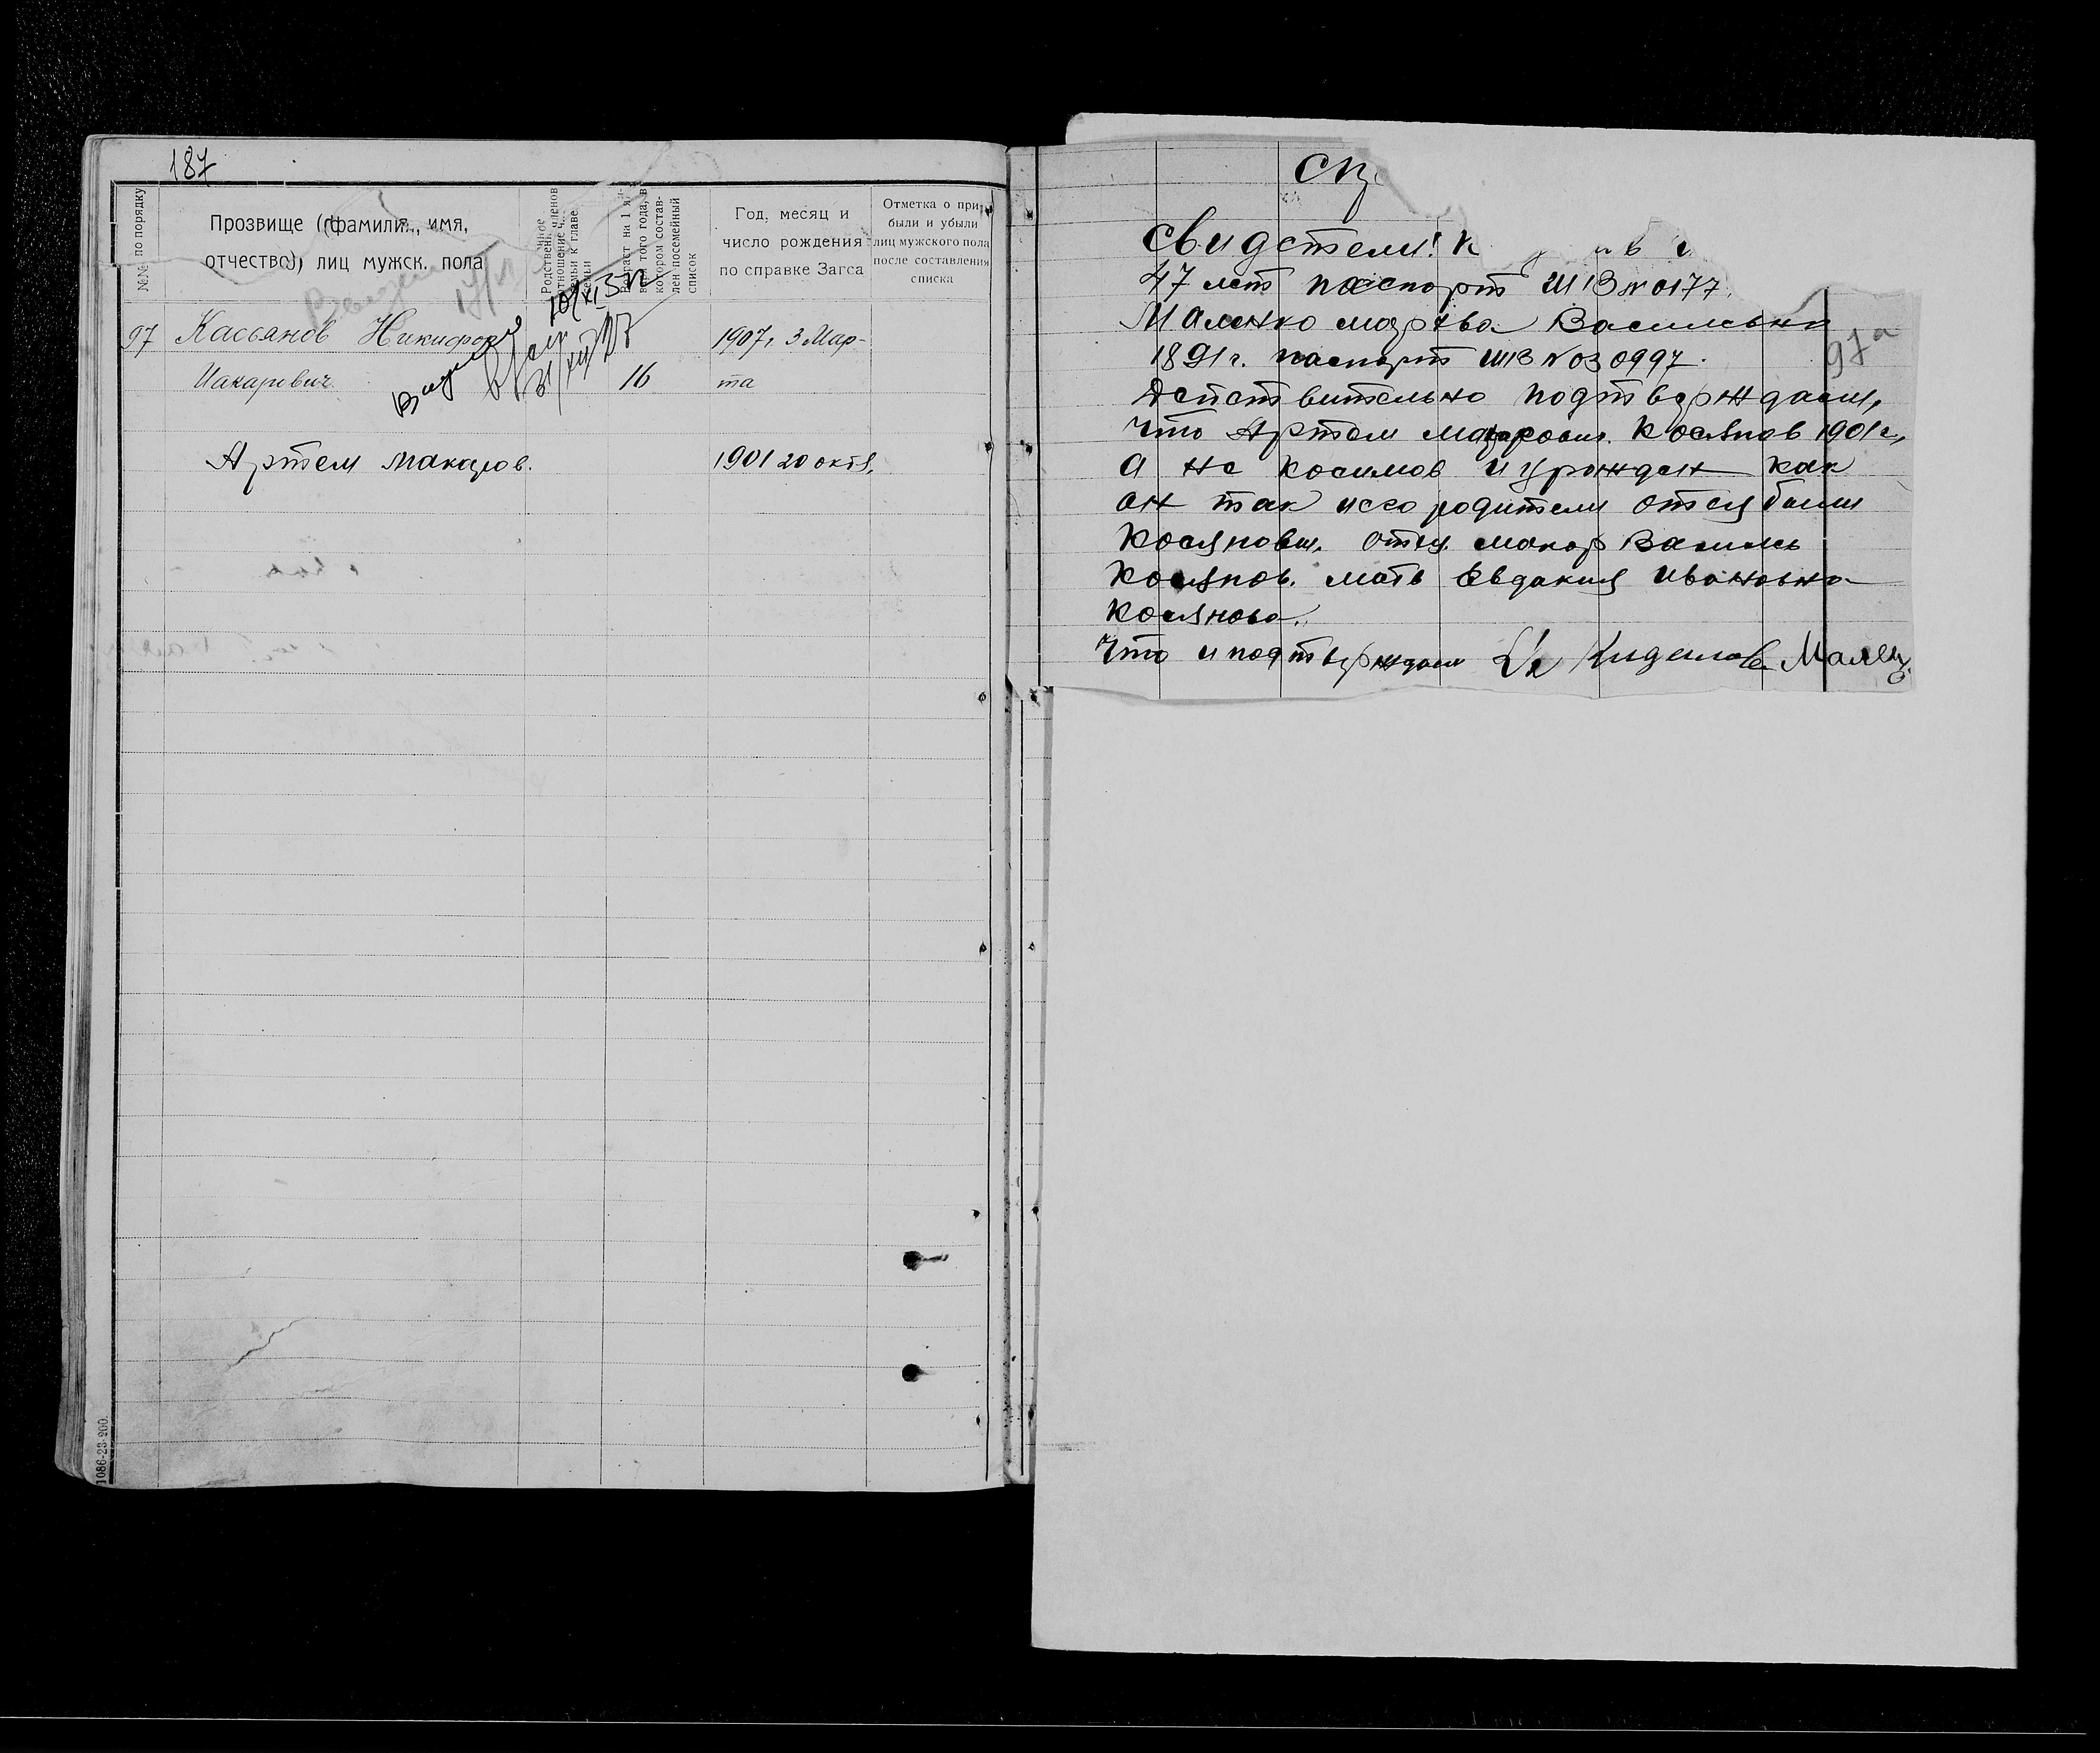 187
№№ по порядку
Прозвище (фамилия, имя,
отчество), лиц мужск. пола
Родственное
отношение членов
семьи к главе
семьи
Возраст на 1 ян-
варя того года, в
котором состав-
лен посемейный
список
Год, месяц и
число рождения
по справке Загса
Отметка о при-
были и убыли
лиц мужского пола
после составления
списка
97 Касьянов Никифор 1907, 3 Мар-
Макаревич 16 та
Артем Макаров. 1901 20 октя,
1086-23-900.
свидетели:
47 лет паспорт ШВ № 0177
Маленко Васильевна
1891 г. паспорт ШВ № 030997.
97а
Действительно подтверждаем,
что Артем Косянов 1901 г,
а не Косимов и урожден как
он так и его родители отец были
Косяновы. отец Макор Василь
Косянов. мать Евдакия Ивановна
Косянова.
Что и подтверждаем